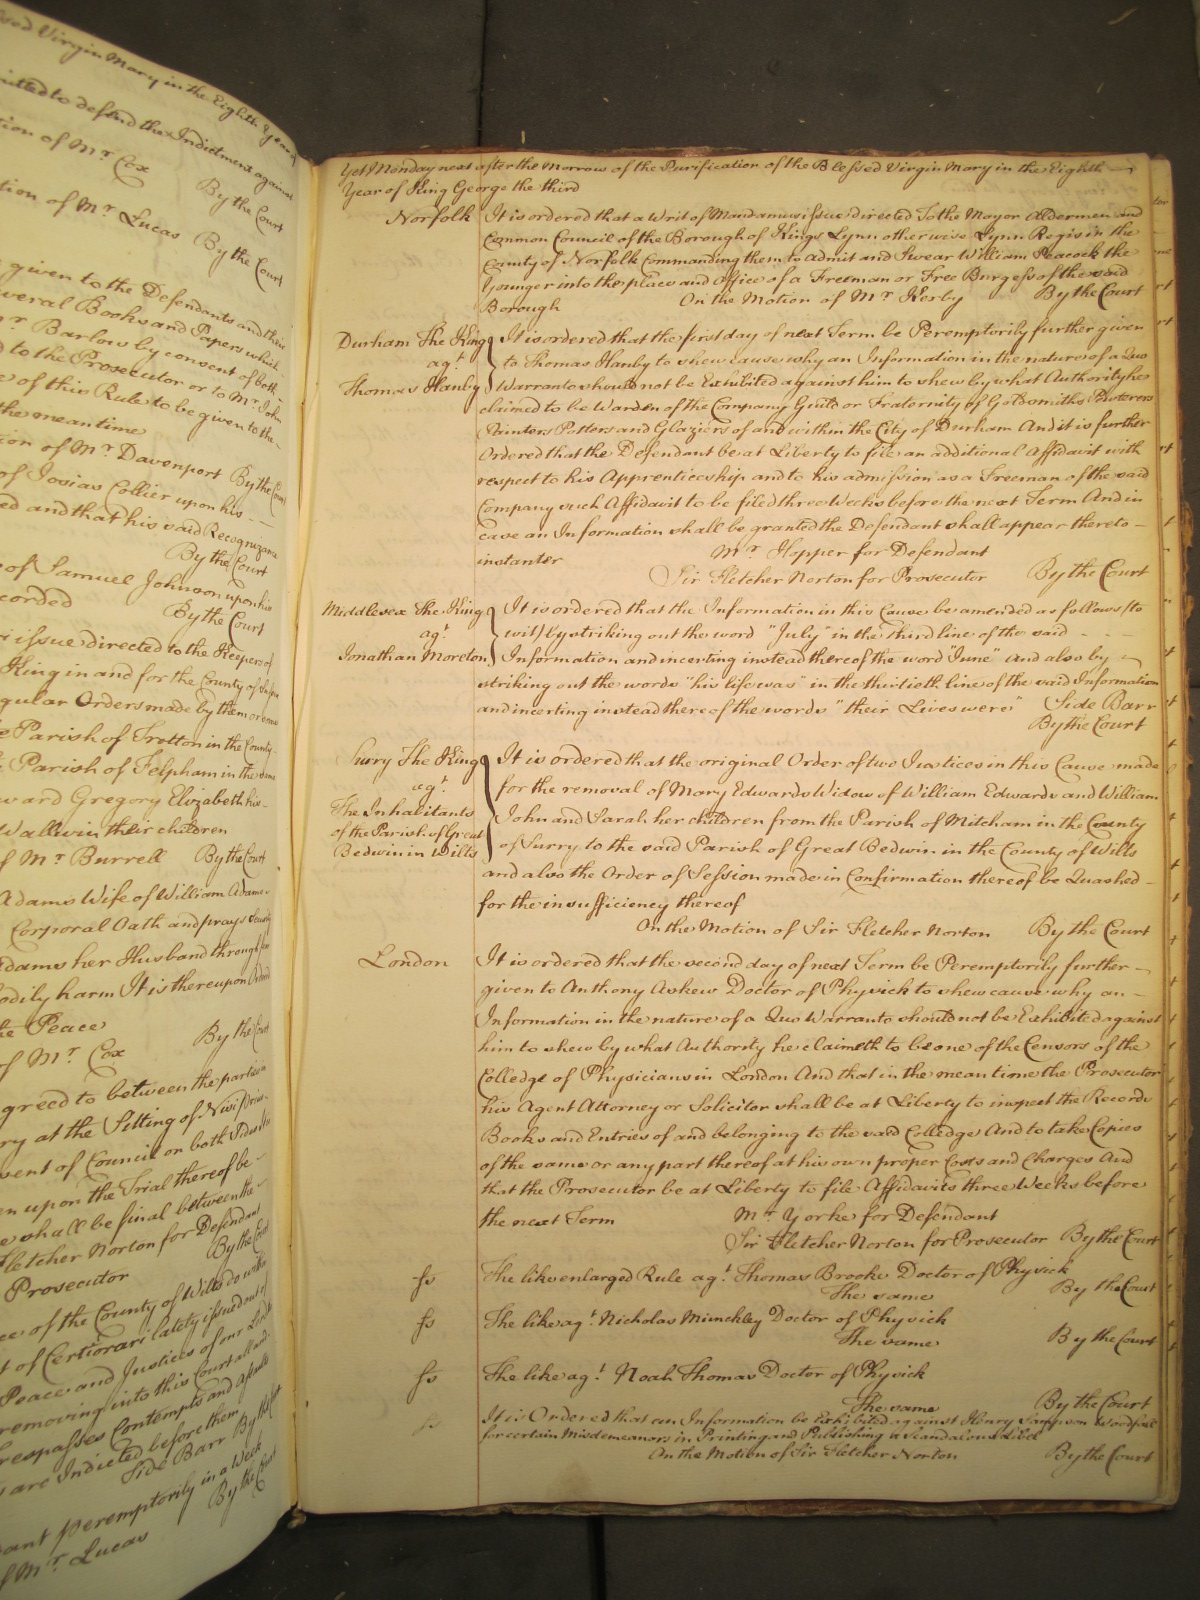 ssed Virgin Mary in the Eighth Year of
mitted to defend the Indictment against
tion of Mr. Cox By the Court
tion of Mr. Lucas By the Court
given to the Defendants and their
everal Books and Papers which
Mr. Barlow by consent of both
d to the Prosecutor or to Mr. John
e of this Rule to be given to the
the meantime
tion of Mr. Davenport By the Court
of Josias Collier upon his
ed and that his said Recognizance
By the Court
of Samuel Johnson upon his
corded By the Court
ri issue directed to the Keepers of
King in and for the County of
gular Orders made by them or some
e Parish of Trotton in the County
Parish of Felpham in the same
ward Gregory Elizabeth his
Wallwin their children
f Mr. Burrell By the Court
Adams Wife of William Adams
Corporal Oath and prays Security
Adams her Husband through
odily harm It is thereupon Ordered
the Peace By the Court
of Mr. Cox
greed to between the parties
ry at the Sitting of Nisi Prius
sent of Council on both Sides
en upon the Trial thereof be
e shall be final between the
Fletcher Norton for Defendant
Prosecutor By the Court
ce of the County of Wilts do
t of Certiorari lately issued out of
Peace and Justices of our Lord
removing into this Court all and
Trespasses Contempts and assaults
are Indicted before them
Side Barr By the Court
ant peremptorily in a Week
of Mr. Lucas By the Court
Yet Monday next after the Morrow of the Purification of the Blessed Virgin Mary in the Eighth
Year of King George the third
Norfolk It is ordered that a Writ of Mandamus issue directed To the Mayor Aldermen and
Common Council of the Borough of Kings Lynn otherwise Lynn Regis in the
County of Norfolk Commanding them to Admit and Swear William Peacock the
Younger into the place and office of a Freeman or Free Burgess of the said
Borough On the Motion of Mr. Kerby By the Court
Durham The King It is ordered that the first day of next Term be Peremptorily further given
agt. to Thomas Hanby to shew cause why an Information in the nature of a Quo
Thomas Hanby Warranto should not be Exhibited against him to shew by what Authority he
claimed to be Warden of the Company Guild or Fraternity of Goldsmiths Pewterers
Painters Potters and Glaziers of and within the City of Durham And it is further
Ordered that the Defendant be at Liberty to file an additional Affidavit with
respect to his Apprenticeship and to his admission as a Freeman of the said
Company such Affidavit to be filed three Weeks before the next Term And in
case an Information shall be granted the Defendant shall appear thereto
instanter Mr. Hopper for Defendant
Sir Fletcher Norton for Prosecutor By the Court
Middlesex The King It is ordered that the Information in this Cause be amended as follows (to
agt. wit) by striking out the word "July" in the third line of the said
Jonathan Moreton Information and incerting instead thereof the word "June" And also by
striking out the words "his life was" in the thirtieth line of the said Information
and incerting instead thereof the words "their Lives were" Side Barr
By the Court
Surry The King It is ordered that the original Order of two Justices in this Cause made
agt. for the removal of Mary Edwards Widow of William Edwards and William
The Inhabitants John and Sarah her children from the Parish of Mitcham in the County
of the Parish of Great of Surry to the said Parish of Great Bedwin in the County of Wilts
Bedwin in Wilts and also the Order of Session made in Confirmation thereof be Quashed
for the insufficiency thereof
On the Motion of Sir Fletcher Norton By the Court
London It is ordered that the second day of next Term be Peremptorily further
given to Anthony Askew Doctor of Physick to shew cause why an
Information in the nature of a Quo Warranto should not be Exhibited against
him to shew by what Authority he claimeth to be one of the Censors of the
Colledge of Physicians in London And that in the mean time the Prosecutor
his Agent Attorney or Solicitor shall be at Liberty to inspect the Records
Books and Entries of and belonging to the said Colledge And to take Copies
of the same or any part thereof at his own proper Costs and Charges And
that the Prosecutor be at Liberty to file Affidavits three Weeks before
the next Term Mr. Yorke for Defendant
Sir Fletcher Norton for Prosecutor By the Court
ss The like enlarged Rule agt. Thomas Brooke Doctor of Physick
The same By the Court
ss The like agt. Nicholas Munckley Doctor of Physick
The same By the Court
ss The like agt. Noah Thomas Doctor of Physick
The same By the Court
ss It is Ordered that an Information be Exhibited against Henry Sampson Woodfall
for certain Misdemeanors in Printing and Publishing a Scandalous Libel
On the Motion of Sir Fletcher Norton By the Court